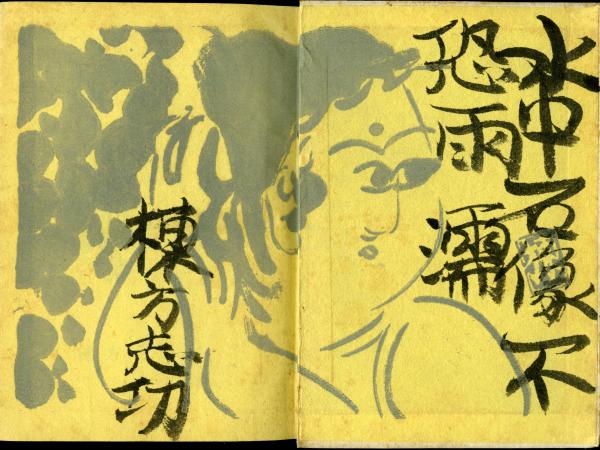 水中石像不
恐雨濡
棟方志功